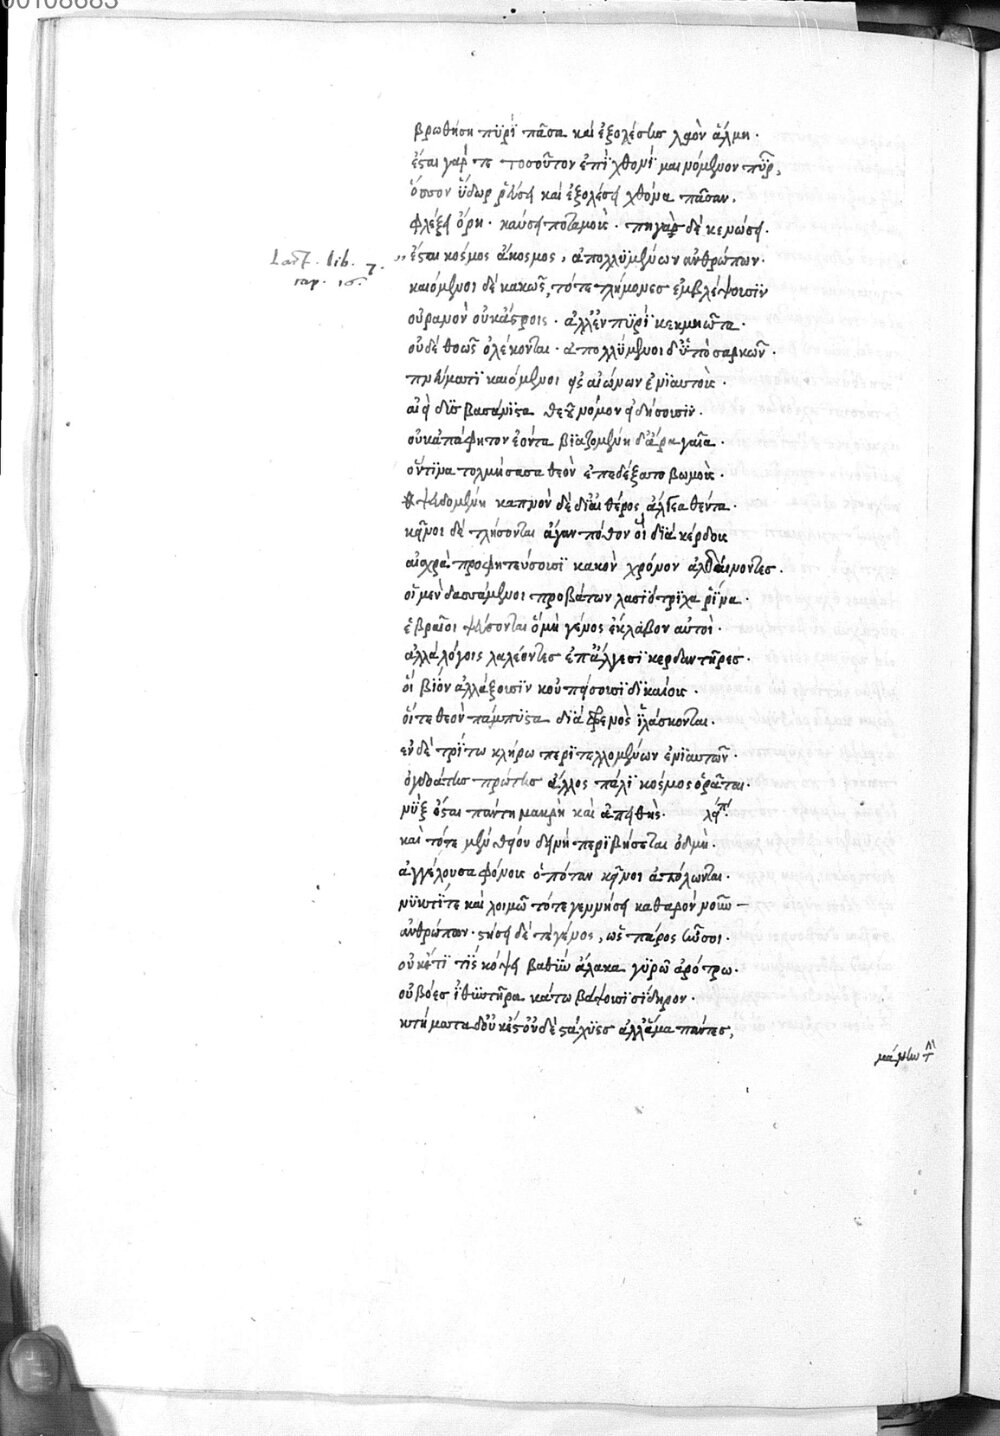 00108683
βρωθήση πϋρῒ πᾶσα καὶ ἐξολέσεις λαὸν ἅλμη.
ἔσται γάρ τε τοσοῦτον ἐπῒ χθονῒ μαινόμενον πῦρ,
ὅσσον ὕδωρ ῥεύσει καὶ ἐξολέσει χθόνα πᾶσαν.
φλέξει ὄρη. καύσει ποταμοὺς. πηγὰς δὲ κενώσει.
Lact. lib. 7.
cap. 16.
„ ἔσται κόσμος ἄκοσμος, ἀπολλϋμένων ἀνθρώπων.
καιόμενοι δὲ κακῶς, τότε τλήμονες ἐμβλέψουσϊν
οὐρανὸν οὐκ ἄστροις. ἀλλ' ἐν πϋρῒ κεκμηῶτα.
οὐδὲ θοῶς ὀλέκονται. ἀπολλύμενοι δ' ὑπὸ σαρκῶν.
πνεύματϊ καιόμενοι ἐς αἰώνων ἐνϊαυτοὺς.
αἰεὶ δϊς βασάνϊστα θεοῦ νόμον εἰδήσουσϊν.
οὐκ ἀπάφητον ἐόντα βϊαζομένη δ' ἄρα γαῖα.
οὕντϊνα τολμήσασα θεὸν ἐπεδέξατο βωμοὺς.
ψευδομένη καπνὸν δὲ δϊ' αἰθέρος
κεῖνοι δὲ τλήσονται ἄγαν πόθον οἳ δϊὰ κέρδους
αἰσχρὰ προφητεύσουσϊ κακὸν χρόνον ἀλθαίνοντες.
οἳ μὲν δυσσάμενοι προβάτων λασϊότρϊχα ῥϊνὰ.
ἑβραῖοι ψεύσονται ὃ μὴ γένος ἔκλαβον αὐτοὶ.
ἀλλὰ λόγοις λαλέοντες ἐπ' ἄλγεσϊ κερδαντῆρες.
οὐ βϊὸν ἀλλάξουσϊν κοὐ πείσουσϊ δϊκαίους.
οἵ τε θεὸν πάμπϊστα δϊὰ φρενὸς ἱλάσκονται.
ἐν δὲ τρίτω κλήρω περϊτελλομένων ἐνϊαυτῶν.
ὀγδοάτης πρώτης ἄλλος πάλϊ κόσμος ὁρᾶται.
νὺξ ἔσται πάντη μακρὴ καὶ ἀπειθὴς.
καὶ τότε μὲν θείου δεινὴ περϊβήσεται ὀδμὴ.
ἀγγέλουσα φόνους ὁπόταν κεῖνοι ἀπόλωνται.
νϋκτΐ τε καὶ λοιμῶ τότε γεννήσει καθαρὸν νοῦν
ἀνθρώπων. στήσει δὲ τὸ γένος, ὡς πάρος ὦσοι.
οὐκέτϊ τϊς κόψει βαθὺν αὔλακα γϋρῶ ἀρότρω.
οὐ βόες ἰθϋντῆρα κάτω βάψουσϊ σίδηρον.
κλήματα δ' οὐκ ἔσται οὐδὲ στάχϋες ἀλλ' ἅμα πάντες,